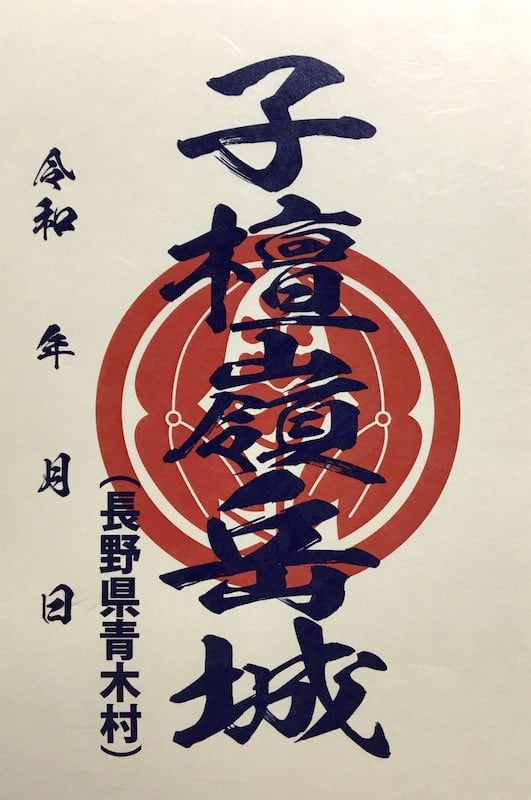 子檀嶺岳城
(長野県青木村)
令和 年 月 日